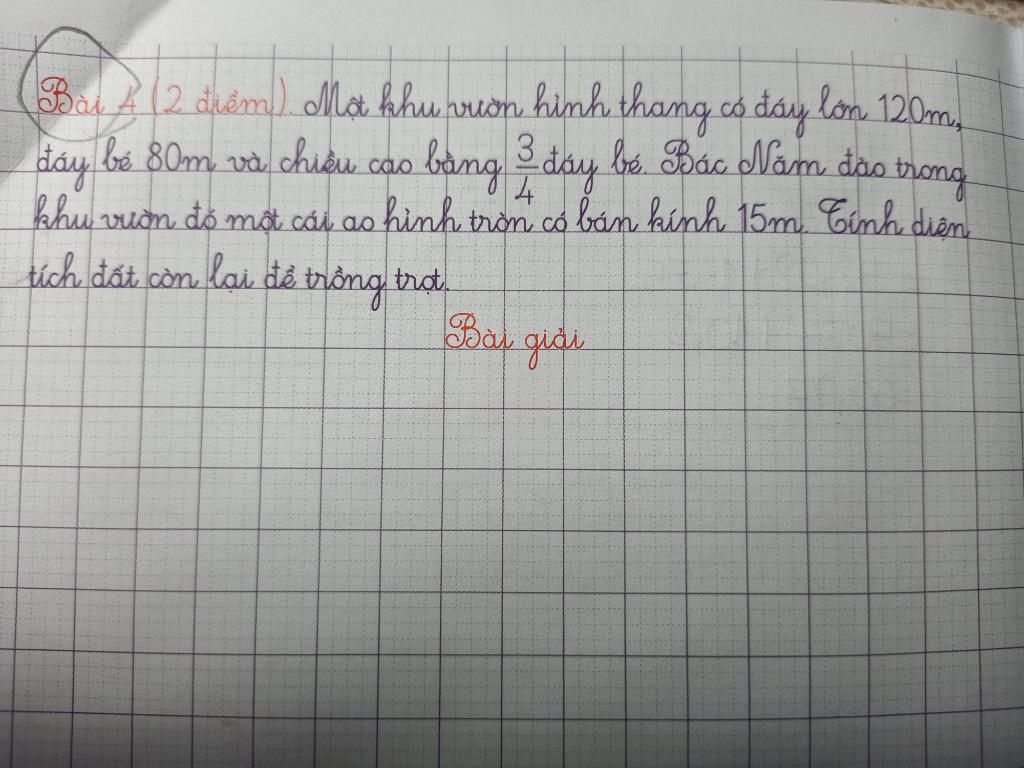 Bài 4 (2 điểm). Một khu vườn hình thang có đáy lớn 120m,
đáy bé 80m và chiều cao bằng 3/4 đáy bé. Bác Năm đào trong
khu vườn đó một cái ao hình tròn có bán kính 15m. Tính diện
tích đất còn lại để trồng trọt.
Bài giải